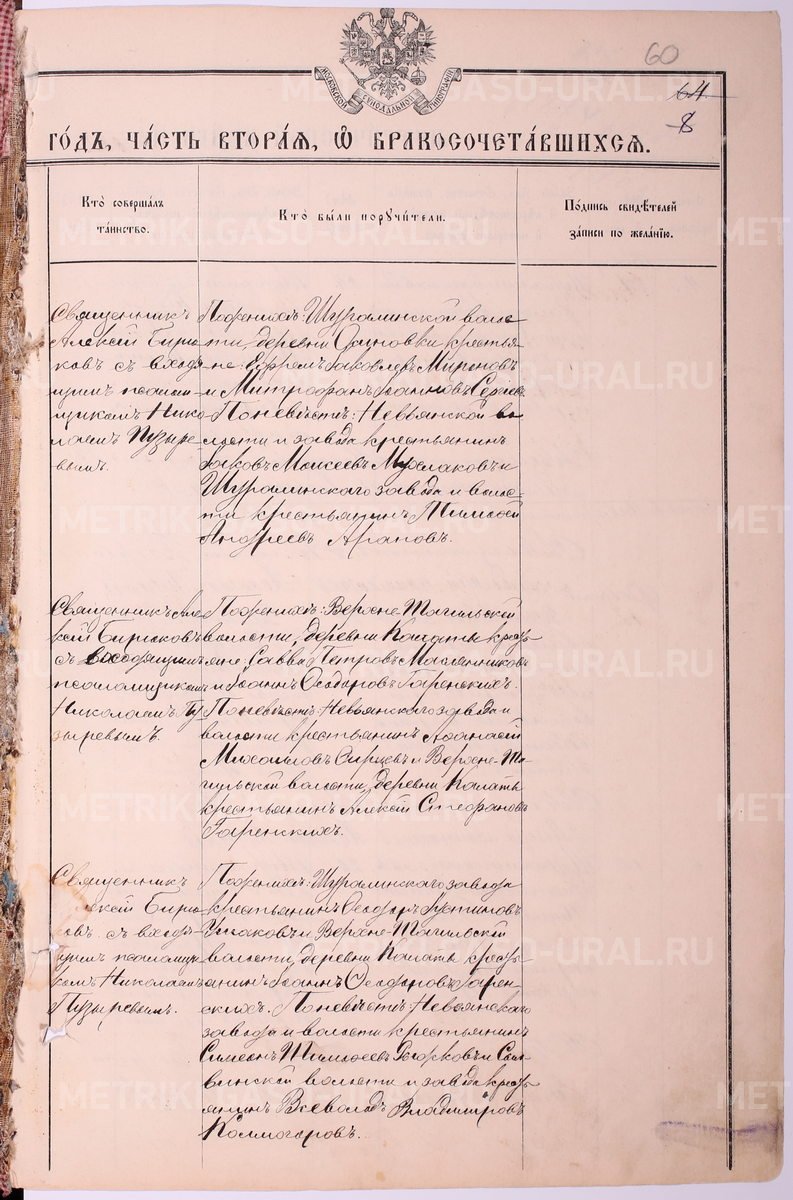 60
64
8
МОСКОВСКОЙ СѴНОДАЛЬНОЙ ТИПОГРАФІИ
ГО́ДЪ, ЧА́СТЬ ВТОРА́Я, Ѽ БРАКОСОЧЕТА́ВШИХСЯ.
Кто̀ соверша́лъ
та́инство.
Кто̀ бы́ли порꙋчи́тели.
По́дпись свидѣ́телей
за́писи по жела́нїю.
Священникъ
Алексѣй Бирю
ковъ съ входя
щимъ псалом-
щикомъ Нико-
лаемъ Пузыре-
вымъ.
По женихѣ: Шуралинской волос
ти, деревни Осиновки крестья
не: Ефремъ Іаковлевъ Мироновъ
и Митрофанъ Іоанновъ
По невѣстѣ: Невьянской во
лости и завода крестьянинъ
Іаковъ Моисеевъ и
Шуралинскаго завода и волос-
ти крестьянинъ Тимофей
Андреевъ Араповъ.
Священникъ Але
ксѣй Бирюковъ
съ входящимъ
псаломщикомъ
Николаемъ Пу
зыревымъ.
По женихѣ: Верхне-Тагильской
волости, деревни Колаты кресть-
яне: Савва Петровъ Маслянниковъ
и Іоаннъ Ѳеодоровъ Гаренскихъ.
По невѣстѣ: Невьянскаго завода и
волости крестьянинъ Аѳанасій
Михаиловъ и Верхне-Та-
гильской волости, деревни Колаты
крестьянинъ Алексѣй Стефановъ
Гаренскихъ.
Священникъ
Алексѣй Бирю
ковъ съ входя-
щимъ псаломщи
комъ Николаемъ
Пузыревымъ.
По женихѣ: Шуралинскаго завода
крестьянинъ Ѳеодоръ Іустиновъ
Ушаковъ и Верхне-Тагильской
волости, деревни Колаты кресть-
янинъ Іоаннъ Ѳеодоровъ Гарен-
скихъ. По невѣстѣ: Невьянскаго
завода и волости крестьянинъ
Симеонъ Тимофеевъ и
волости и завода кресть-
янинъ Всеволодъ Владиміровъ
Колмогоровъ.
METRIKI.GASU-URAL.RU